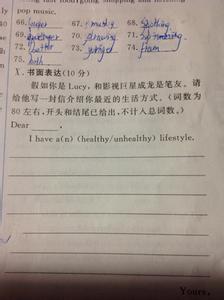 pop music.
66. super 67. 68.
69. 70. drawing 71. swimming
72. 73. 74. from
75. both
X. 书面表达(10 分)
假如你是 Lucy，和影视巨星成龙是笔友。请
给他写一封信介绍你最近的生活方式。(词数为
80 左右，开头和结尾已给出，不计入总词数。)
Dear ______,
I have a(n) (healthy/unhealthy) lifestyle.
Yours,